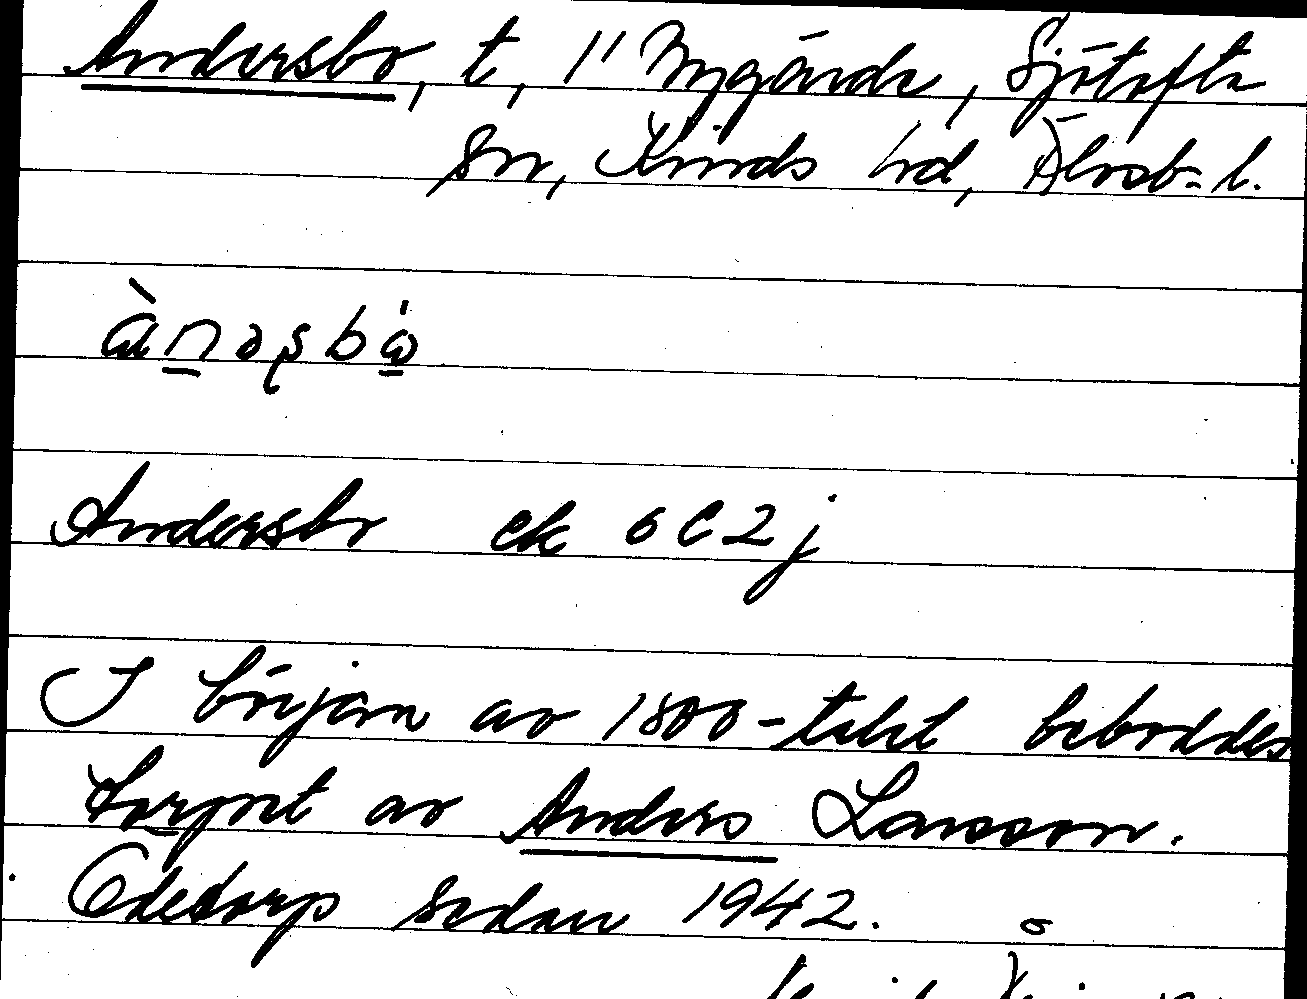 Andersbo, t, 1" Nygärde, Sjötofta
sn, Kinds hd, Älvsb. l.
àn̠əʂbɷ̠̀
Andersbo ek 6C2j
I början av 1800-talet beboddes
torpet av Anders Larsson.
Ödetorp sedan 1942.